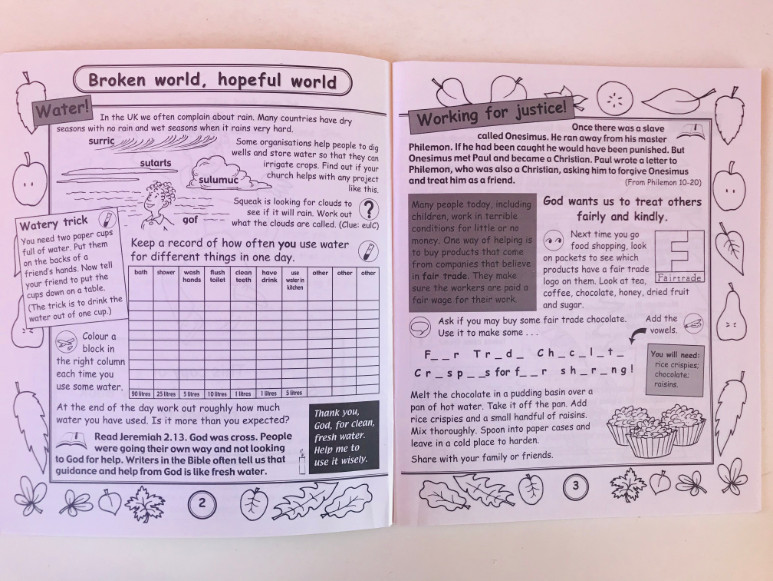 Broken world, hopeful world
Water!
In the UK we often complain about rain. Many countries have dry
seasons with no rain and wet seasons when it rains very hard.
surric
sutarts
sulumuc
gof
Some organisations help people to dig
wells and store water so that they can
irrigate crops. Find out if your
church helps with any project
like this.
Squeak is looking for clouds to
see if it will rain. Work out
what the clouds are called. (Clue: eulC)
?
Watery trick
You need two paper cups
full of water. Put them
on the backs of a
friend's hands. Now tell
your friend to put the
cups down on a table.
(The trick is to drink the
water out of one cup.)
Keep a record of how often you use water
for different things in one day.
bath shower wash hands flush toilet clean teeth have drink use water in kitchen other other other
90 litres 25 litres 5 litres 10 litres 1 litres 1 litres 5 litres
Colour a
block in
the right column
each time you
use some water.
At the end of the day work out roughly how much
water you have used. Is it more than you expected?
Read Jeremiah 2.13. God was cross. People
were going their own way and not looking
to God for help. Writers in the Bible often tell us that
guidance and help from God is like fresh water.
Thank you,
God, for clean,
fresh water.
Help me to
use it wisely.
2
Working for justice!
Once there was a slave
called Onesimus. He ran away from his master
Philemon. If he had been caught he would have been punished. But
Onesimus met Paul and became a Christian. Paul wrote a letter to
Philemon, who was also a Christian, asking him to forgive Onesimus
and treat him as a friend.
(From Philemon 10-20)
Many people today, including
children, work in terrible
conditions for little or no
money. One way of helping is
to buy products that come
from companies that believe
in fair trade. They make
sure the workers are paid a
fair wage for their work.
God wants us to treat others
fairly and kindly.
Next time you go
food shopping, look
on packets to see which
products have a fair trade
logo on them. Look at tea,
coffee, chocolate, honey, dried fruit
and sugar.
F
Fairtrade
Ask if you may buy some fair trade chocolate.
Use it to make some . . .
Add the
vowels.
F _ _ r T r _ d _ C h _ c _ l _ t _
C r _ s p _ _ s for f _ _ r s h _ r _ n g !
You will need:
rice crispies;
chocolate;
raisins.
Melt the chocolate in a pudding basin over a
pan of hot water. Take it off the pan. Add
rice crispies and a small handful of raisins.
Mix thoroughly. Spoon into paper cases and
leave in a cold place to harden.
Share with your family or friends.
3